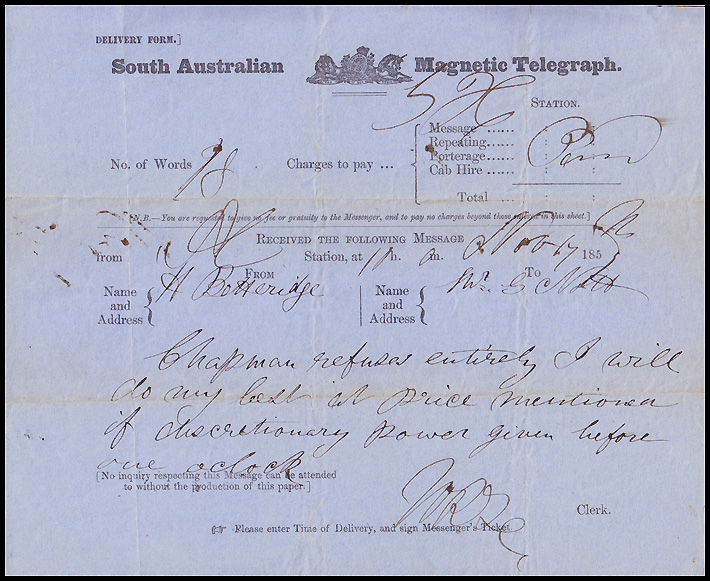 DELIVERY FORM.]
South Australian Magnetic Telegraph.
STATION.
No. of Words
Charges to pay ...
Message ...... : :
Repeating...... : :
Porterage...... : :
Cab Hire ...... : :
Total ... : :
[N.B.—You are requested to give no fee or gratuity to the Messenger, and to pay no charges beyond those entered in this sheet.]
RECEIVED THE FOLLOWING MESSAGE
from Station, at h. m. Nov 17 185
FROM To
Name and Address { H Botteridge
Name and Address { Mr. G
Chapman refuses entirely I will
do my best at price mentioned
if discretionary power given before
one oclock
[No inquiry respecting this Message can be attended
to without the production of this paper.]
Clerk.
☞ Please enter Time of Delivery, and sign Messenger's Ticket.